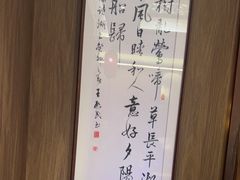 樹亂鶯啼草長平湖
風日晴和人意好夕陽
船歸